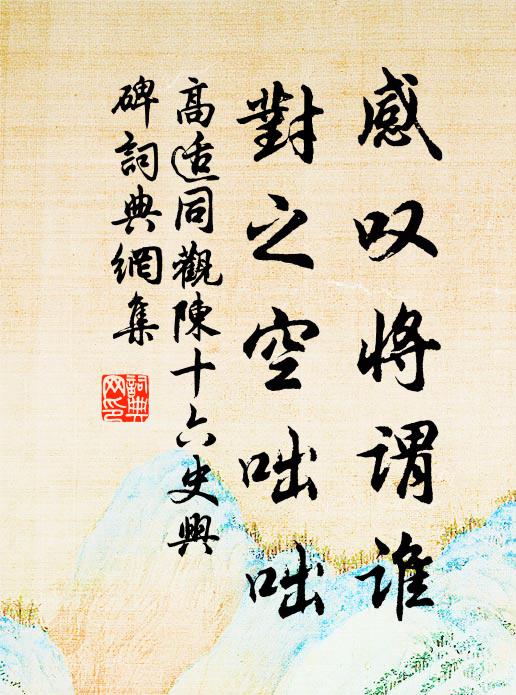 感叹将谓谁
對之空咄咄
高适同觀陳十六史興
碑詞典網集
詞典網印